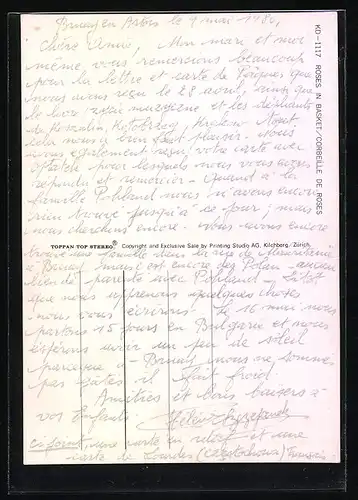 Bruay en Artois le 9 mai 1980,
Chère Anne, Mon mari et moi
même vous remercions beaucoup
pour la lettre et carte de Pâques que
nous avons reçu le 28 avril, ainsi que
le livre, et les dépliants
de Koszalin, Kołobrzeg, Krakow
cela nous a bien fait plaisir. Nous
avons également reçu votre carte avec
pour lesquels nous vous avons
répondu et remercier. Quand à la
famille nous n'avons encore
rien trouvé jusqu'à ce jour; mais
nous cherchons encore. Nous avons encore
trouvé une famille dans la rue de
à Bruay mais c'est encore des
parenté avec
que nous apprenons quelques choses
nous vous écrirons. Le 16 mai nous
partons 15 jours en Bulgarie et nous
espérons avoir un peu de soleil
parceque à Bruay nous ne sommes
pas gâtés il fait froid.
Amitiés et bons baisers à
vos Enfants.
ci-joint, une carte en relief et une
carte de Lourdes (Czestochowa) français.
TOPPAN TOP STEREO® Copyright and Exclusive Sale by Printing Studio AG, Kilchberg/Zürich.
KD-1117 ROSES IN BASKET/CORBEILLE DE ROSES